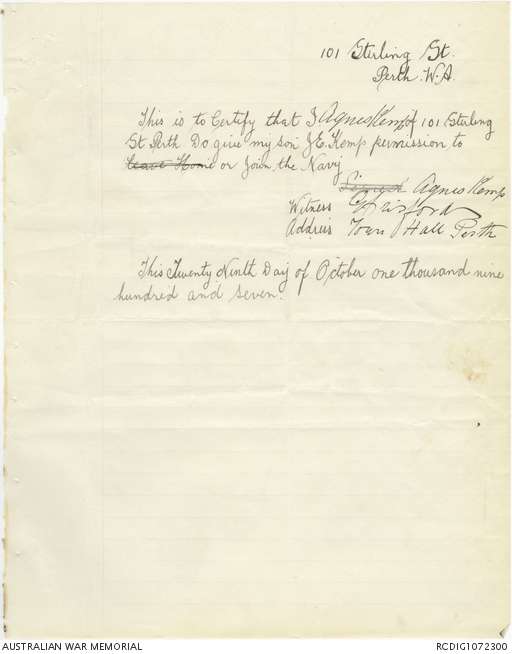 101 Sterling St.
Perth. W.A.
This is to Certify that I Agnes Kemp of 101 Sterling
St Perth Do give my son J.E. Kemp permission to
leave Home or Join the Navy
Signed Agnes Kemp
Witness
Address Town Hall Perth
This Twenty Ninth Day of October one thousand nine
hundred and seven.
AUSTRALIAN WAR MEMORIAL
RCDIG1072300